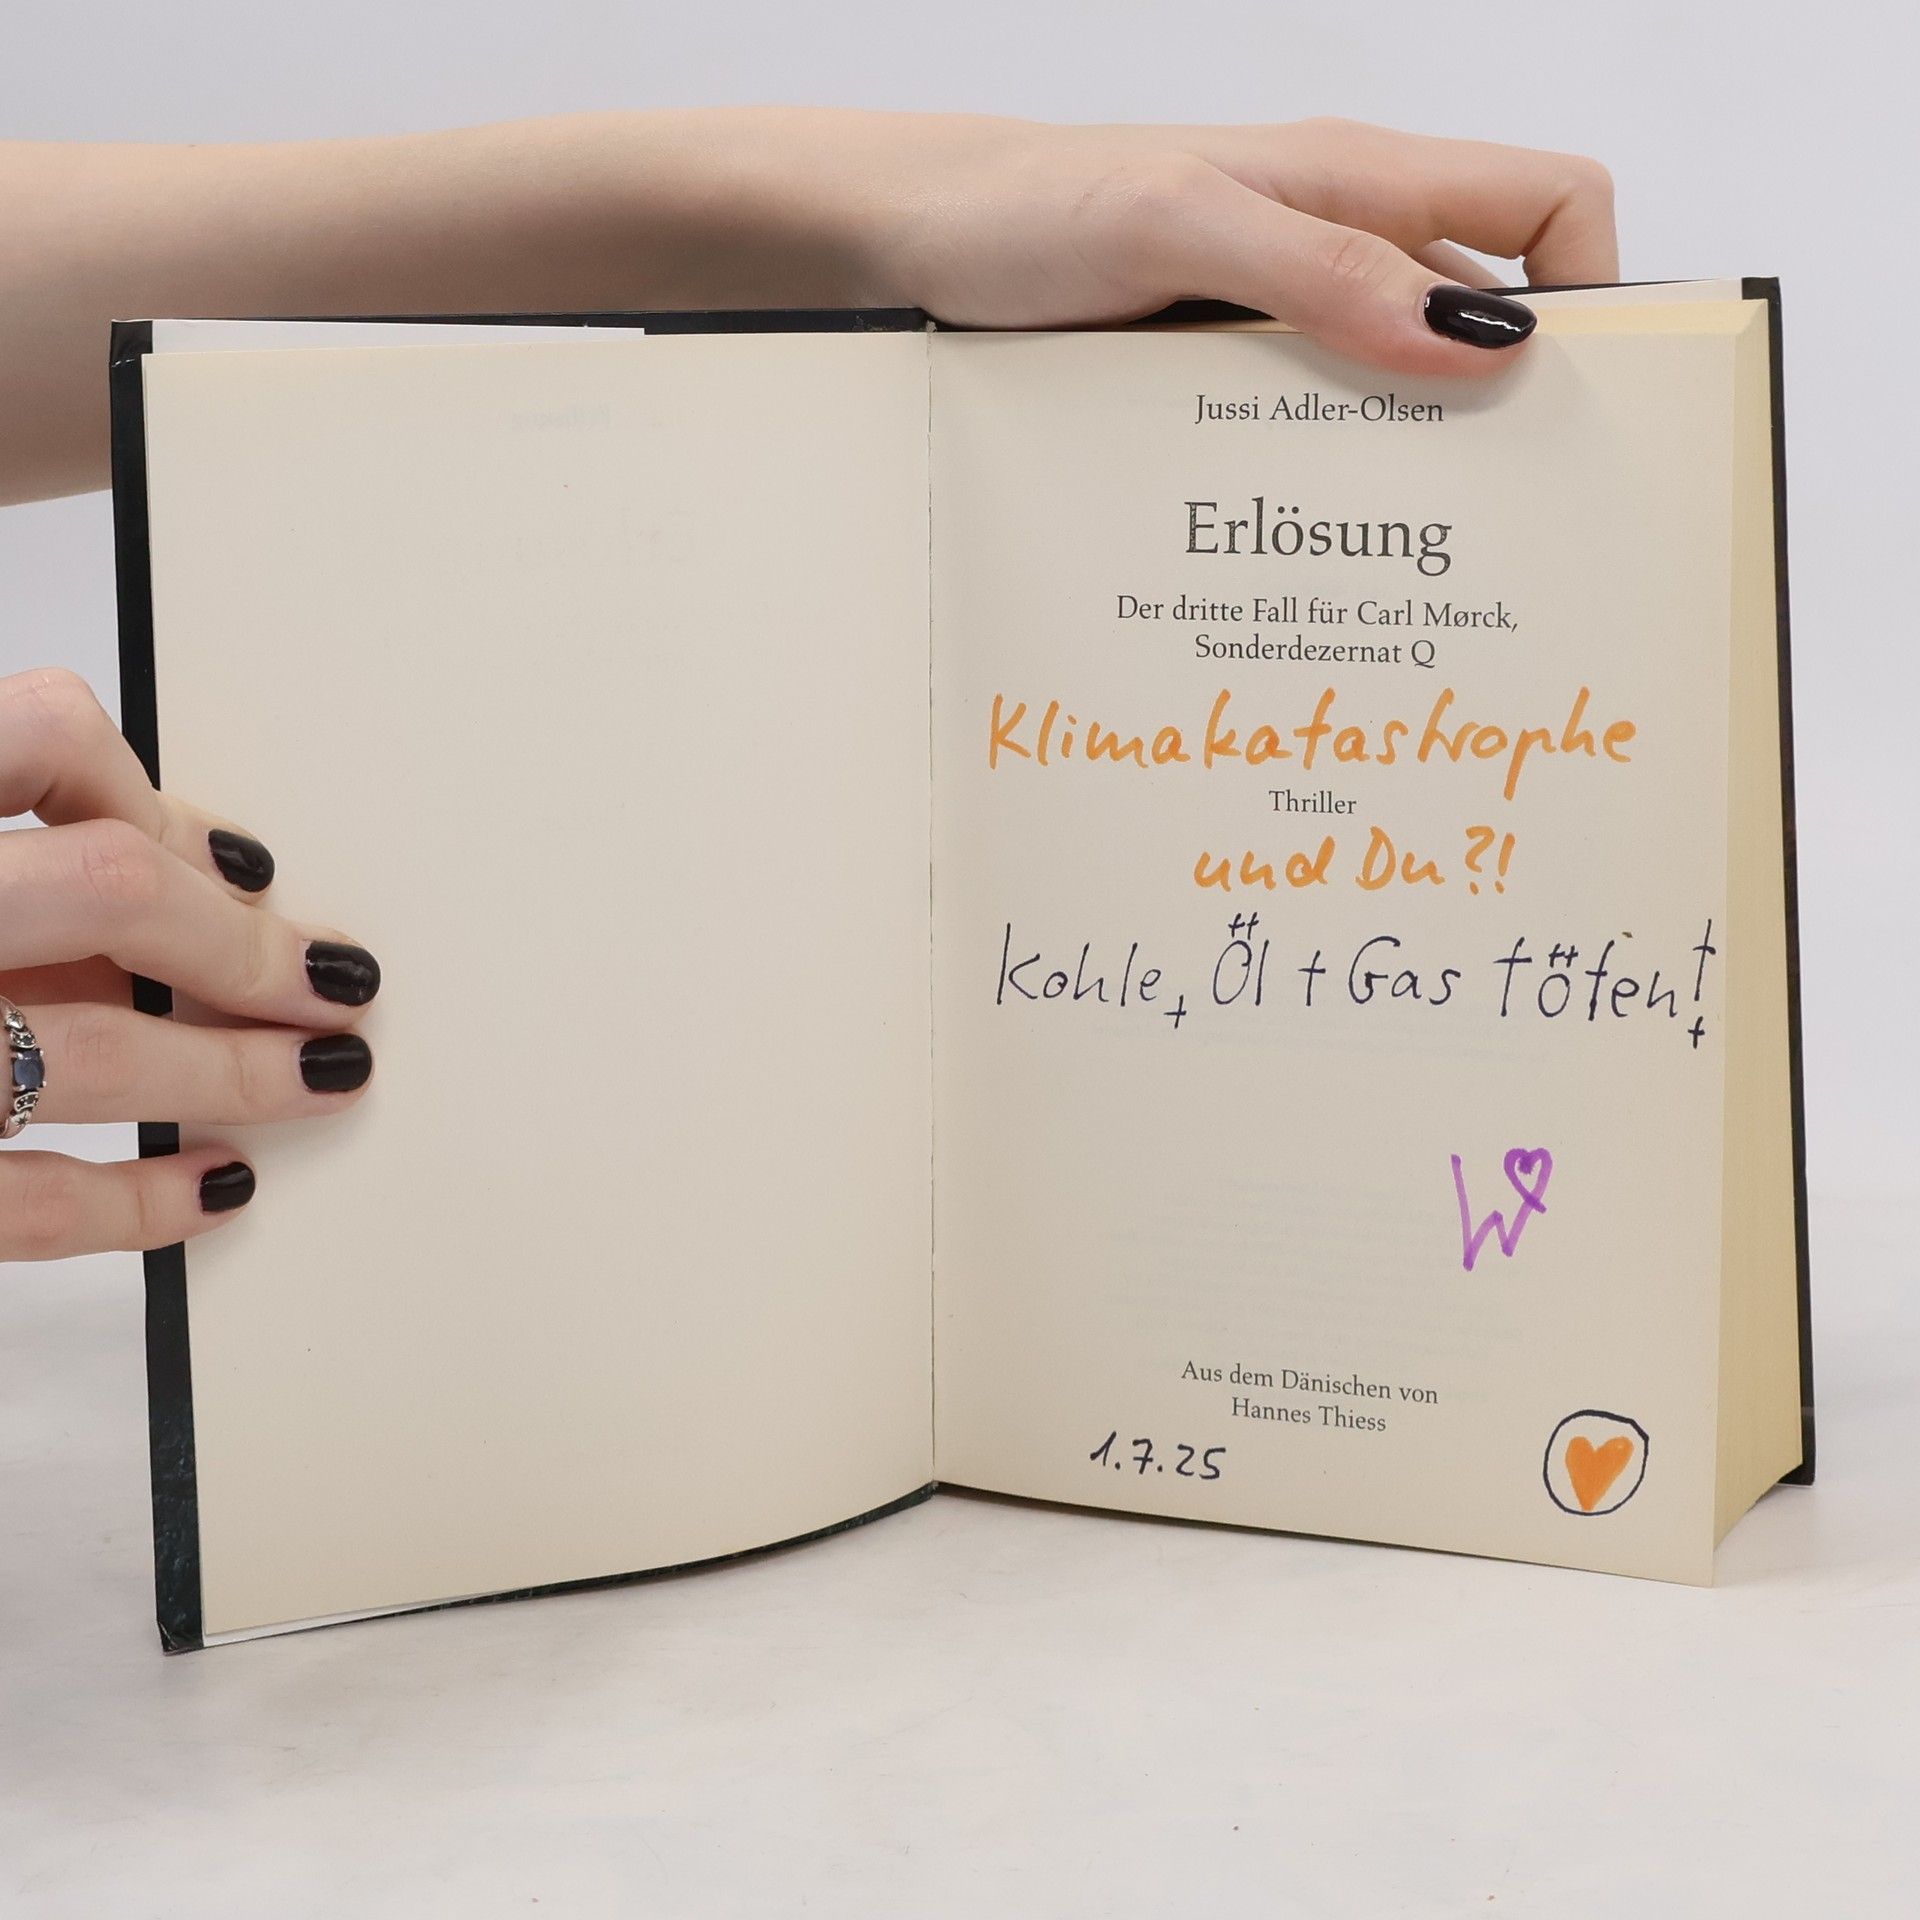 Jussi Adler-Olsen
Erlösung
Der dritte Fall für Carl Mørck,
Sonderdezernat Q
Klimakatastrophe
Thriller
und Du?!
Kohle, Öl + Gas töten!
W
Aus dem Dänischen von
Hannes Thiess
1.7.25